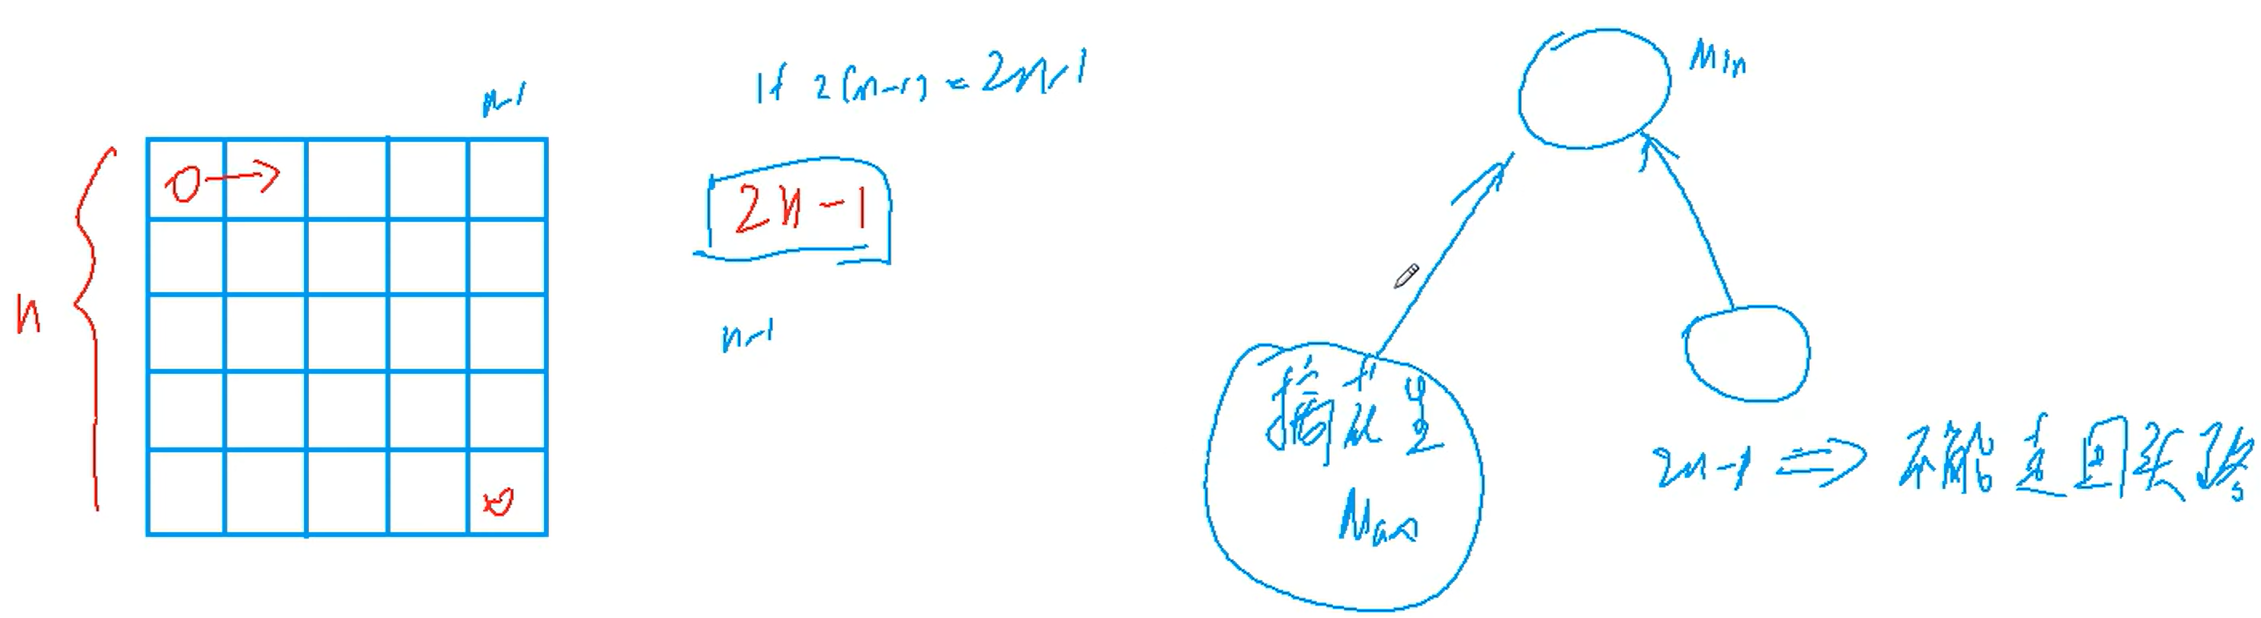 n-1
1+2(n-1)=2n-1
0
2n-1
n
n-1
Min
摘花生
Max
2n-1 => 不能走回头路